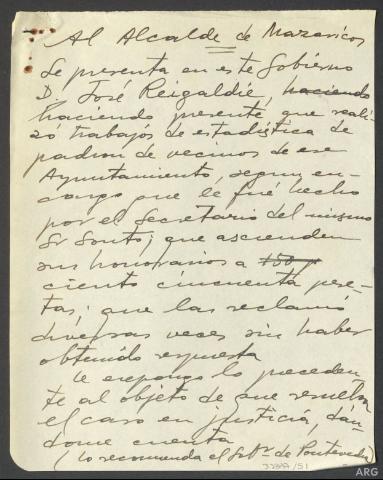 Al Alcalde de Mazaricos
Se presenta en este Gobierno
D. José Reigaldie, haciendo
haciendo presente que reali-
zó trabajos de estadística de
padron de vecinos de ese
Ayuntamiento, segun en-
cargo que le fué hecho
por el Secretario del mismo
Sr Souto; que ascienden
sus honorarios a 150 p
ciento cincuenta pese-
tas; que las reclamó
diversas veces sin haber
obtenido respuesta
Le expongo lo preceden-
te al objeto de que resuelva
el caso en justicia, dán-
dome cuenta
(lo recomienda el Gobr. de Pontevedra)
/51
ARG